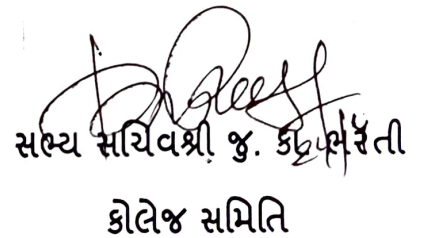 સભ્ય સચિવશ્રી જુ. કા. ભરતી
કોલેજ સમિતિ